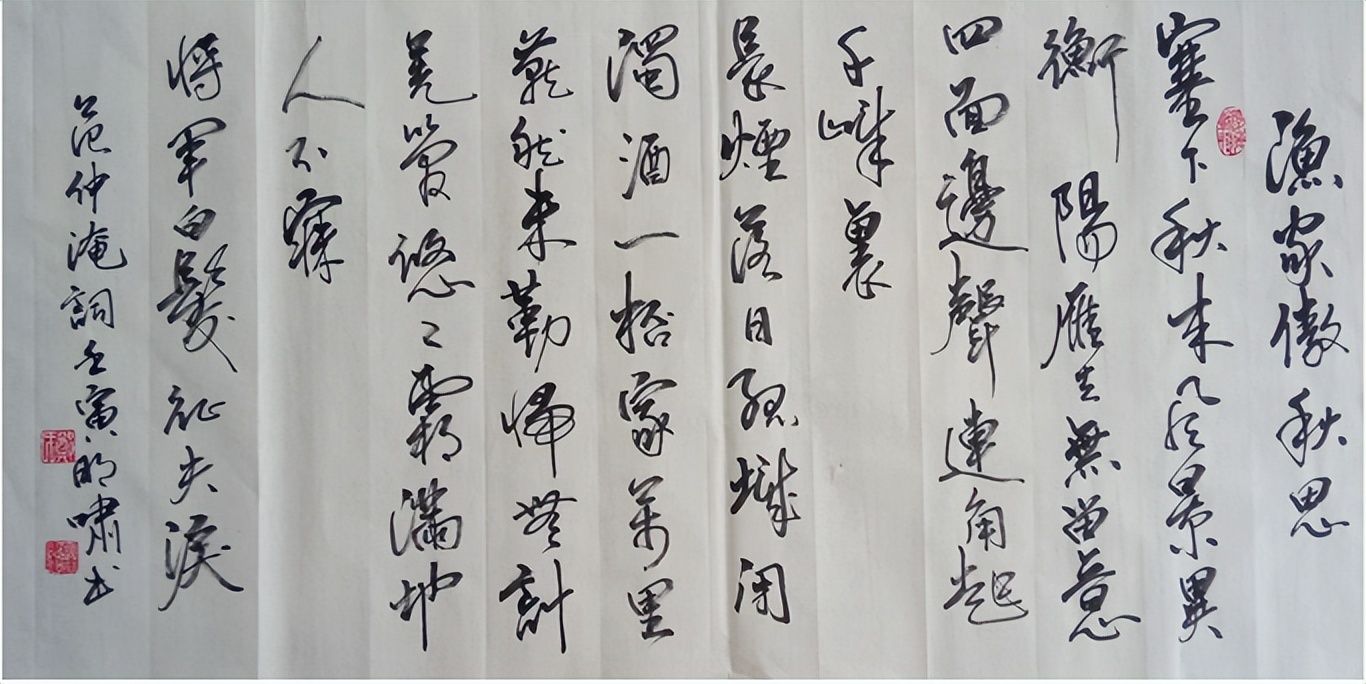 漁家傲秋思
塞下秋来风景異
衡陽雁去無留意
四面邊聲連角起
千嶂裏
長煙落日孤城闭
濁酒一桮家萬里
燕然未勒歸無計
羌管悠〻霜滿地
人不寐
将軍白髮征夫淚
范仲淹詞壬寅明嘯书